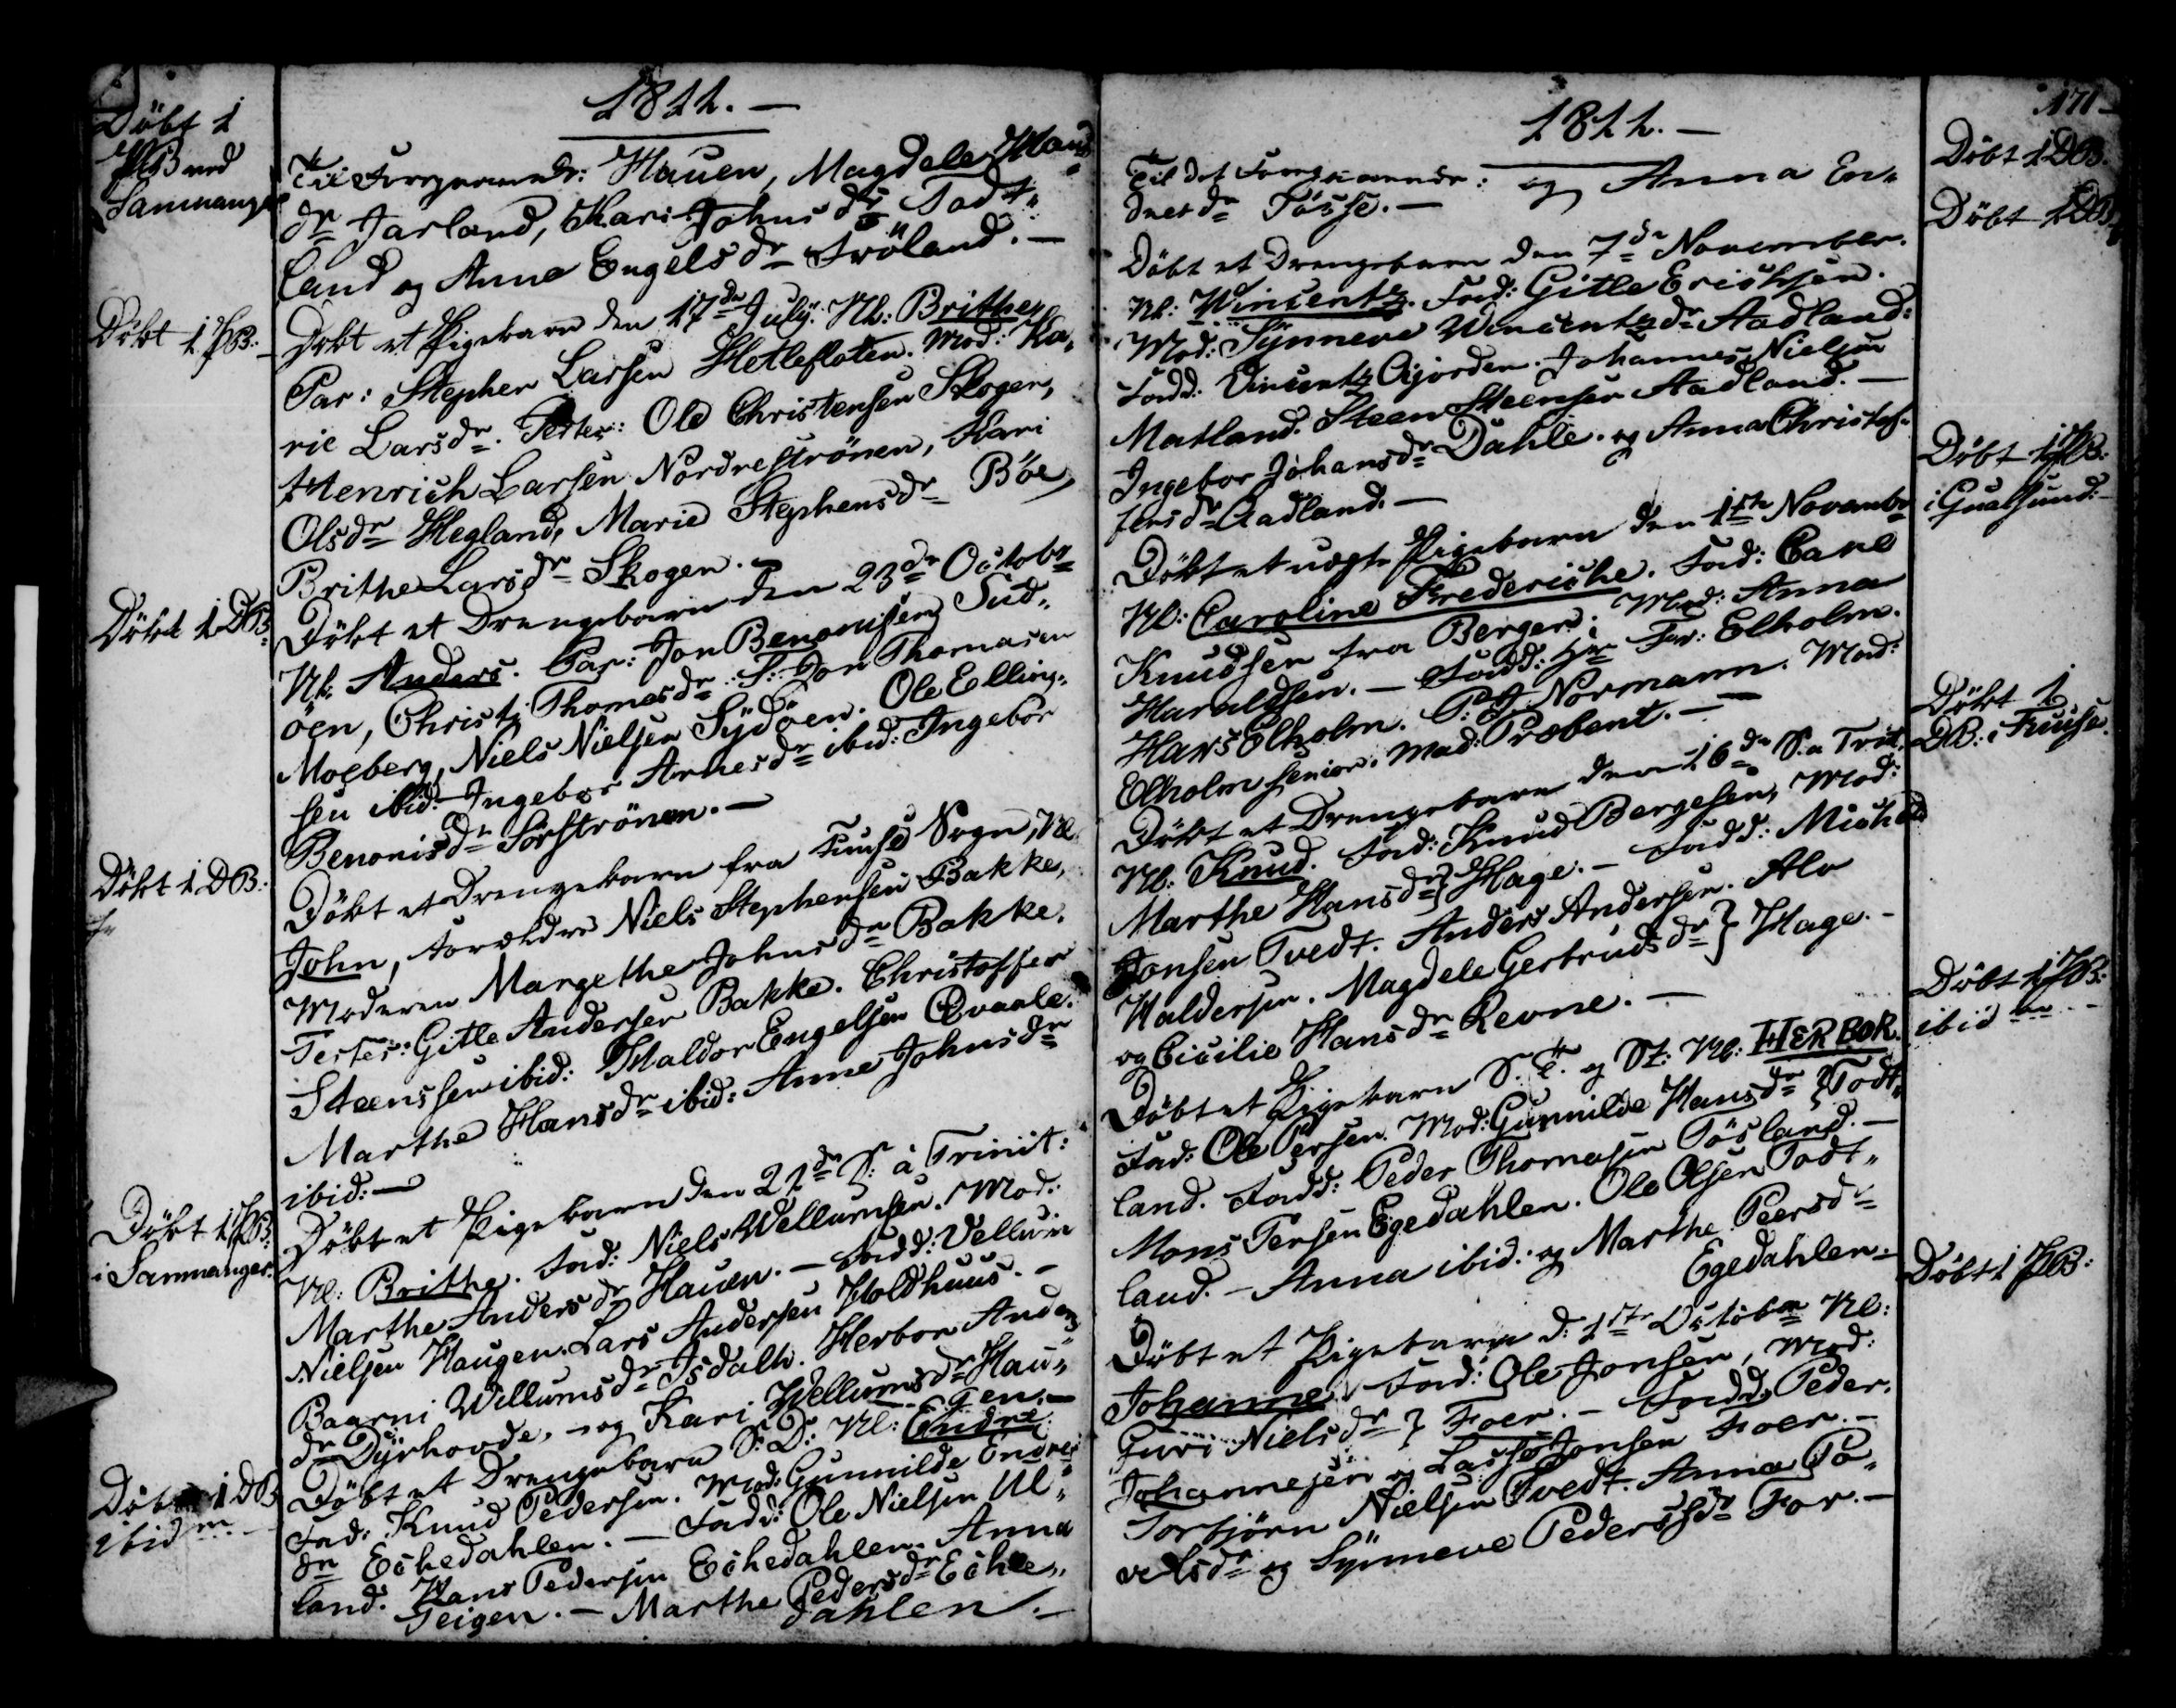 1811. —
Døbt 1
PB ved
Samnanger
Til Foregaaende: Hauen, Magdale Hans
dr Jarland, Kari Johns dr Todt„
land og Anna Engels dr Tröland. —
Døbt 1 PB:
Døbt et Pigebarn den 17de July. Nl: Brithe,
Par: Stephen Larsen Hetlefloten. Mod: Ka„
rie Lars dr. Testes: Ole Christensen Skogen,
Henrich Larsen Nordreströnen, Kari
Ols dr Hegland, Marie Stephens dr Böe,
Brithe Lars dr Skogen. —
Døbt 1 DB:
Døbt et Drengebarn den 23de Octobr
Nl: Anders. Par: Jon Benonisen Sud„
öen, Christ; Thomas dr. T: Jon Thomasen
Moeberg, Niels Nielsen Sydöen. Ole Elling„
sen ibid: Ingebor Arnes dr ibid: Ingebor
Benonis dr Sörströnen. —
Døbt 1 DB:
Døbt et Drengebarn fra Fuuse Sogn, Nl
John, Forældre Niels Stephensen Bakke,
Moderen Margethe Johns dr Bakke.
Testes: Gitle Andersen Bakke. Christoffer
Steenssen ibid: Haldor Engelsen Qvaale.
Marthe Hans dr ibid: Anne Johns dr
ibid: —
Døbt 1 PB:
i Samnanger.
Døbt et Pigebarn den 21de S: a Trinit:
Nl: Brithe. Fad: Niels Wellumsen. Mod:
Marthe Anders dr Hauen. — Fadd: Vellum
Nielsen Haugen. Lars Andersen Holdhuus. —
Baarni Willums dr Isdalh. Herbor Anders
dr Dyrhovde, — og Kari Wellums dr Hau„
gen. —
Døbt 1 DB
ibidm
Døbt et Drengebarn S: D: Nl: Endre.
Fad: Knud Pedersen. Mod: Gunnilde Endres
dr Echedahlen. — Fadd: Ole Nielsen Ul„
land. Hans Pedersen Echedahlen. Anna
Teigen. — Marthe Peders dr Eche„
dahlen. —
171
1811. —
Døbt 1 DB.
Til det Foregaaende: og Anna En„
dres dr Tösse. —
Døbt 1 DB
Døbt et Drengebarn den 7de November.
Nl: Wincentz. Fad: Gitle Erichsen.
Mod: Synneve Wincentz dr Aadland:
Fadd: Vincentz Gjorden. Johannes Nielsen
Matland. Steen Steensen Aadland. —
Ingebor Johans dr Dahle. og Anna Christof„
fers dr Aadland. —
Døbt 1 PB:
i Gualsund. —
Døbt et uægte Pigebarn den 1ste Novembr
Nl: Caroline Frederiche. Fad: Carl
Knudsen fra Bergen; Mod: Anna
Haraldsen. — Fadd: Hr Fr: Elholm.
Hans Elholm. P: J Normann. Mad:
Elholm senior. Mad: Prebent. —
Døbt 1
DB: i Fuuse.
Døbt et Drengebarn den 16de S. a Trit.
Nl: Knud. Fad: Knud Bergesen, Mod:
Marthe Hans dr } Hage. — Fadd: Michel
Jonsen Tvedt. Anders Andersen. Alv
Haldersen. Magdele Gertruds dr } Hage. —
og Cicilie Hans dr Revne. —
Døbt 1 PB:
ibidem
Døbt et Pigebarn S. T. og St: Nl: HERBOR.
Fad: Ole Persen. Mod: Gunnilde Hans dr } Todt„
land. Fadd: Peder Thomasen Tösland. —
Mons Persen Egedahlen. Ole Olsen Todt„
land. — Anna ibid: og Marthe Peers dr
Egedahlen. —
Døbt 1 PB:
Døbt et Pigebarn d: 1ste Octobr Nl:
Johanne. Fad: Ole Jonsen, Mod:
Guri Niels dr } Foer. — Fadd: Peder
Johannesen og Lasse Jonsen Foer. —
Torbjörn Nielsen Tvedt. Anna Po„
vels dr og Synneve Peders dr For. —